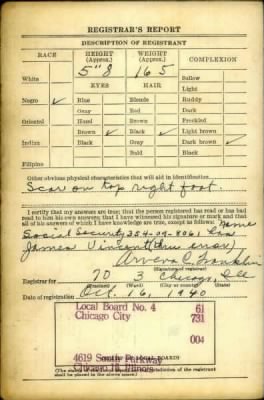 REGISTRAR'S REPORT
DESCRIPTION OF REGISTRANT
RACE HEIGHT (Approx.) WEIGHT (Approx.) COMPLEXION
5" 8 165
White EYES HAIR Sallow
Light
Negro ✓ Blue Blonde Ruddy
Gray Red Dark
Oriental Hazel Brown Freckled
Brown ✓ Black ✓ Light brown
Indian Black Gray Dark brown ✓
Bald Black
Filipino
Other obvious physical characteristics that will aid in identification
Scar on top right foot.
I certify that my answers are true; that the person registered has read or has had
read to him his own answers; that I have witnessed his signature or mark and that
all of his answers of which I have knowledge are true, except as follows:
Social Security 354-09-8061
James Vincent
Franklin
(Signature of registrar)
Registrar for 70 3 Chicago, Ill
(Precinct) (Ward) (City or county)
Date of registration Oct. 16, 1940
Local Board No. 4 61
Chicago City 731
004
4619 South Parkway
Chicago Illinois
(STAMP OF LOCAL BOARD)